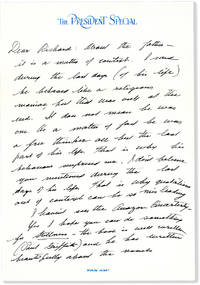 The PRESIDENT SPECIAL
Dear Richard: About the father —
it is a matter of context. I said
during the last days (of his life)
he behaves like a religious
maniac but this was not at the
end. It does not mean he was
one. As a matter of fact he was
a free thinker all but the last
part of his life. That is why his
behaviour
you mentioned during the last
days of his life. That is why quotations
out of context can be so misleading
I haven't seen the Amazon Quarterly.
Yes I hope you can do something
for — the book is well written
(Paul Griffith) and he has written
beautifully about the
PAN AM